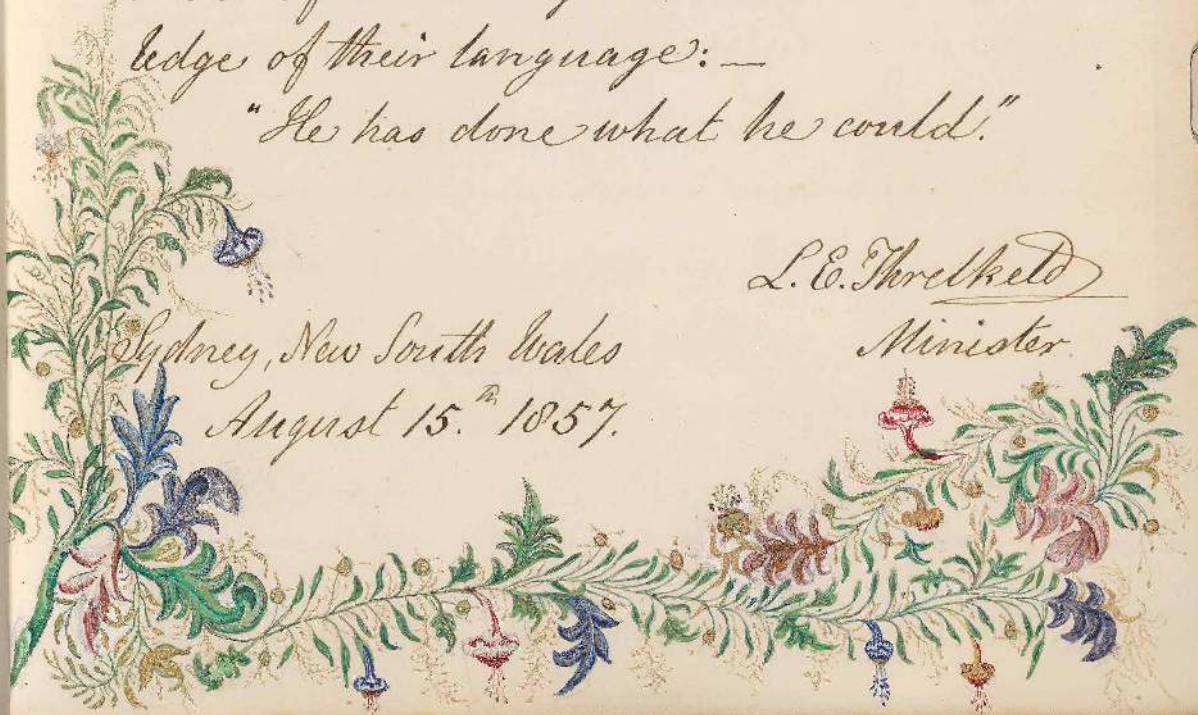 ledge of their language:—
"He has done what he could."
L. E. Threlkeld
Minister.
Sydney, New South Wales
August 15.th 1857.